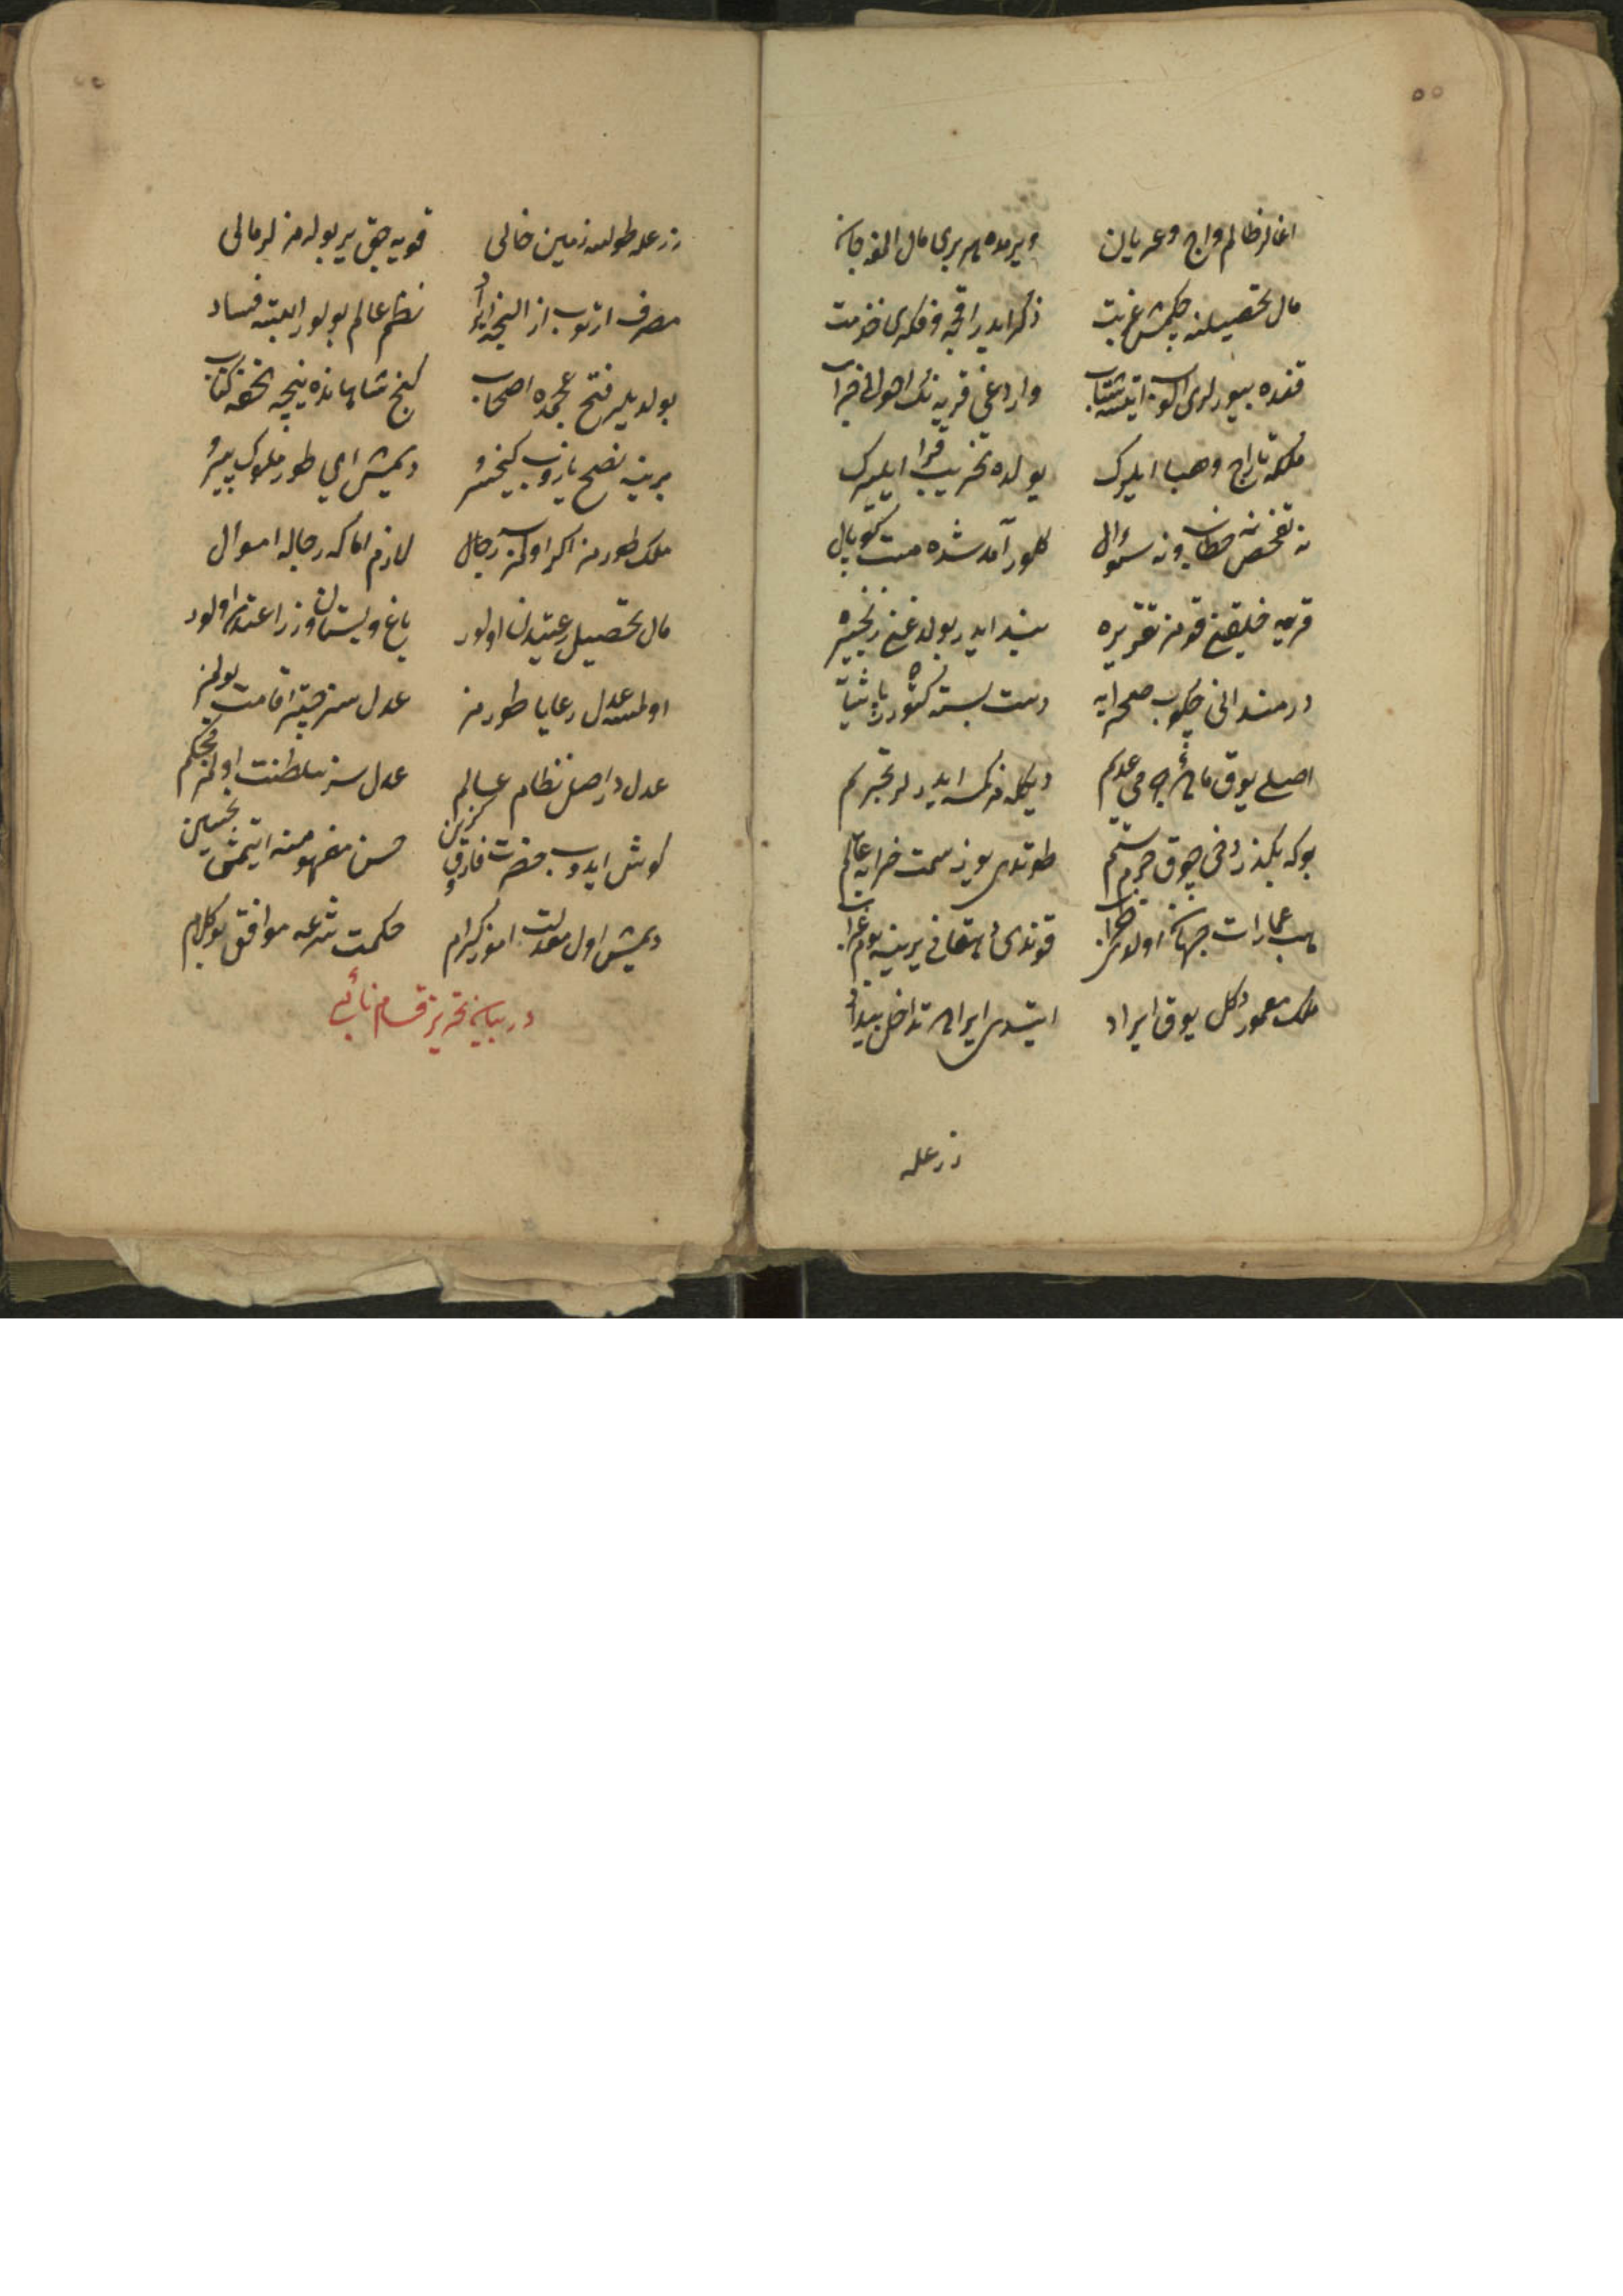 اغالر ظالم و اج و عریان ویرمده هر بری مال الفه جان
مال تحصیلنه چکمش غربت ذکر ایدر اقچه و فکری خذمت
قنده بیورلری اکا ایتسه شتاب واردغی قریه نك احوالی خراب
ملکمه تاراج و هبا ایلیرك یولده تخریب قرا ایلیرك
نه تفحص نه خطاب و نه سؤال کلور آمد شده مست
قریه خلقین قومز تقریره بند ایدر بولدغین زنجیره
درمندانی چکوب صحرایه دست بسته کتورر پاشایه
اصلی یوق می عدیم دیکله مز کمسه ایدرلر تجریم
بوکه بکذردخی چوق جرم ستم طوتدی یوز سمت خرابه عالم
هب عمارات جهان اولدی خراب قوندی دهقانی یرینه بوم غراب
ملك معمور دکل یوق ایراد ایتدی ایرانه تداخل بیداد
زرعله
زرعله طولسه زمین خالی قویه جق یر بوله مزلر مالی
مصرف ارتوب از الیجه ایراد نظم عالم بولور البته فساد
بولدیلر فتح عجمده اصحاب کنج شاهانده نیجه تحفه کتاب
برینه نصح یازوب کیخسرو دیمش ای طور ملوك پیرو
ملك طورمز اکر اولمز سه رجال لازم اما که رجاله اموال
مال تحصیل رعیتدن اولور باغ و بستان و زراعتدن اولور
اولمسه عدل رعایا طورمز عدل سز خیر اقامت بولمز
عدل در اصل نظام عالم عدل سز سلطنت اولمز محکم
کوش ایدوب حضرت فاروق کزین حسن مفهومنه ایتمش تحسین
دیمش اول معدلت اموز کرام حکمت شرعه موافق بو کلام
در بیان تحریر قسام نائب